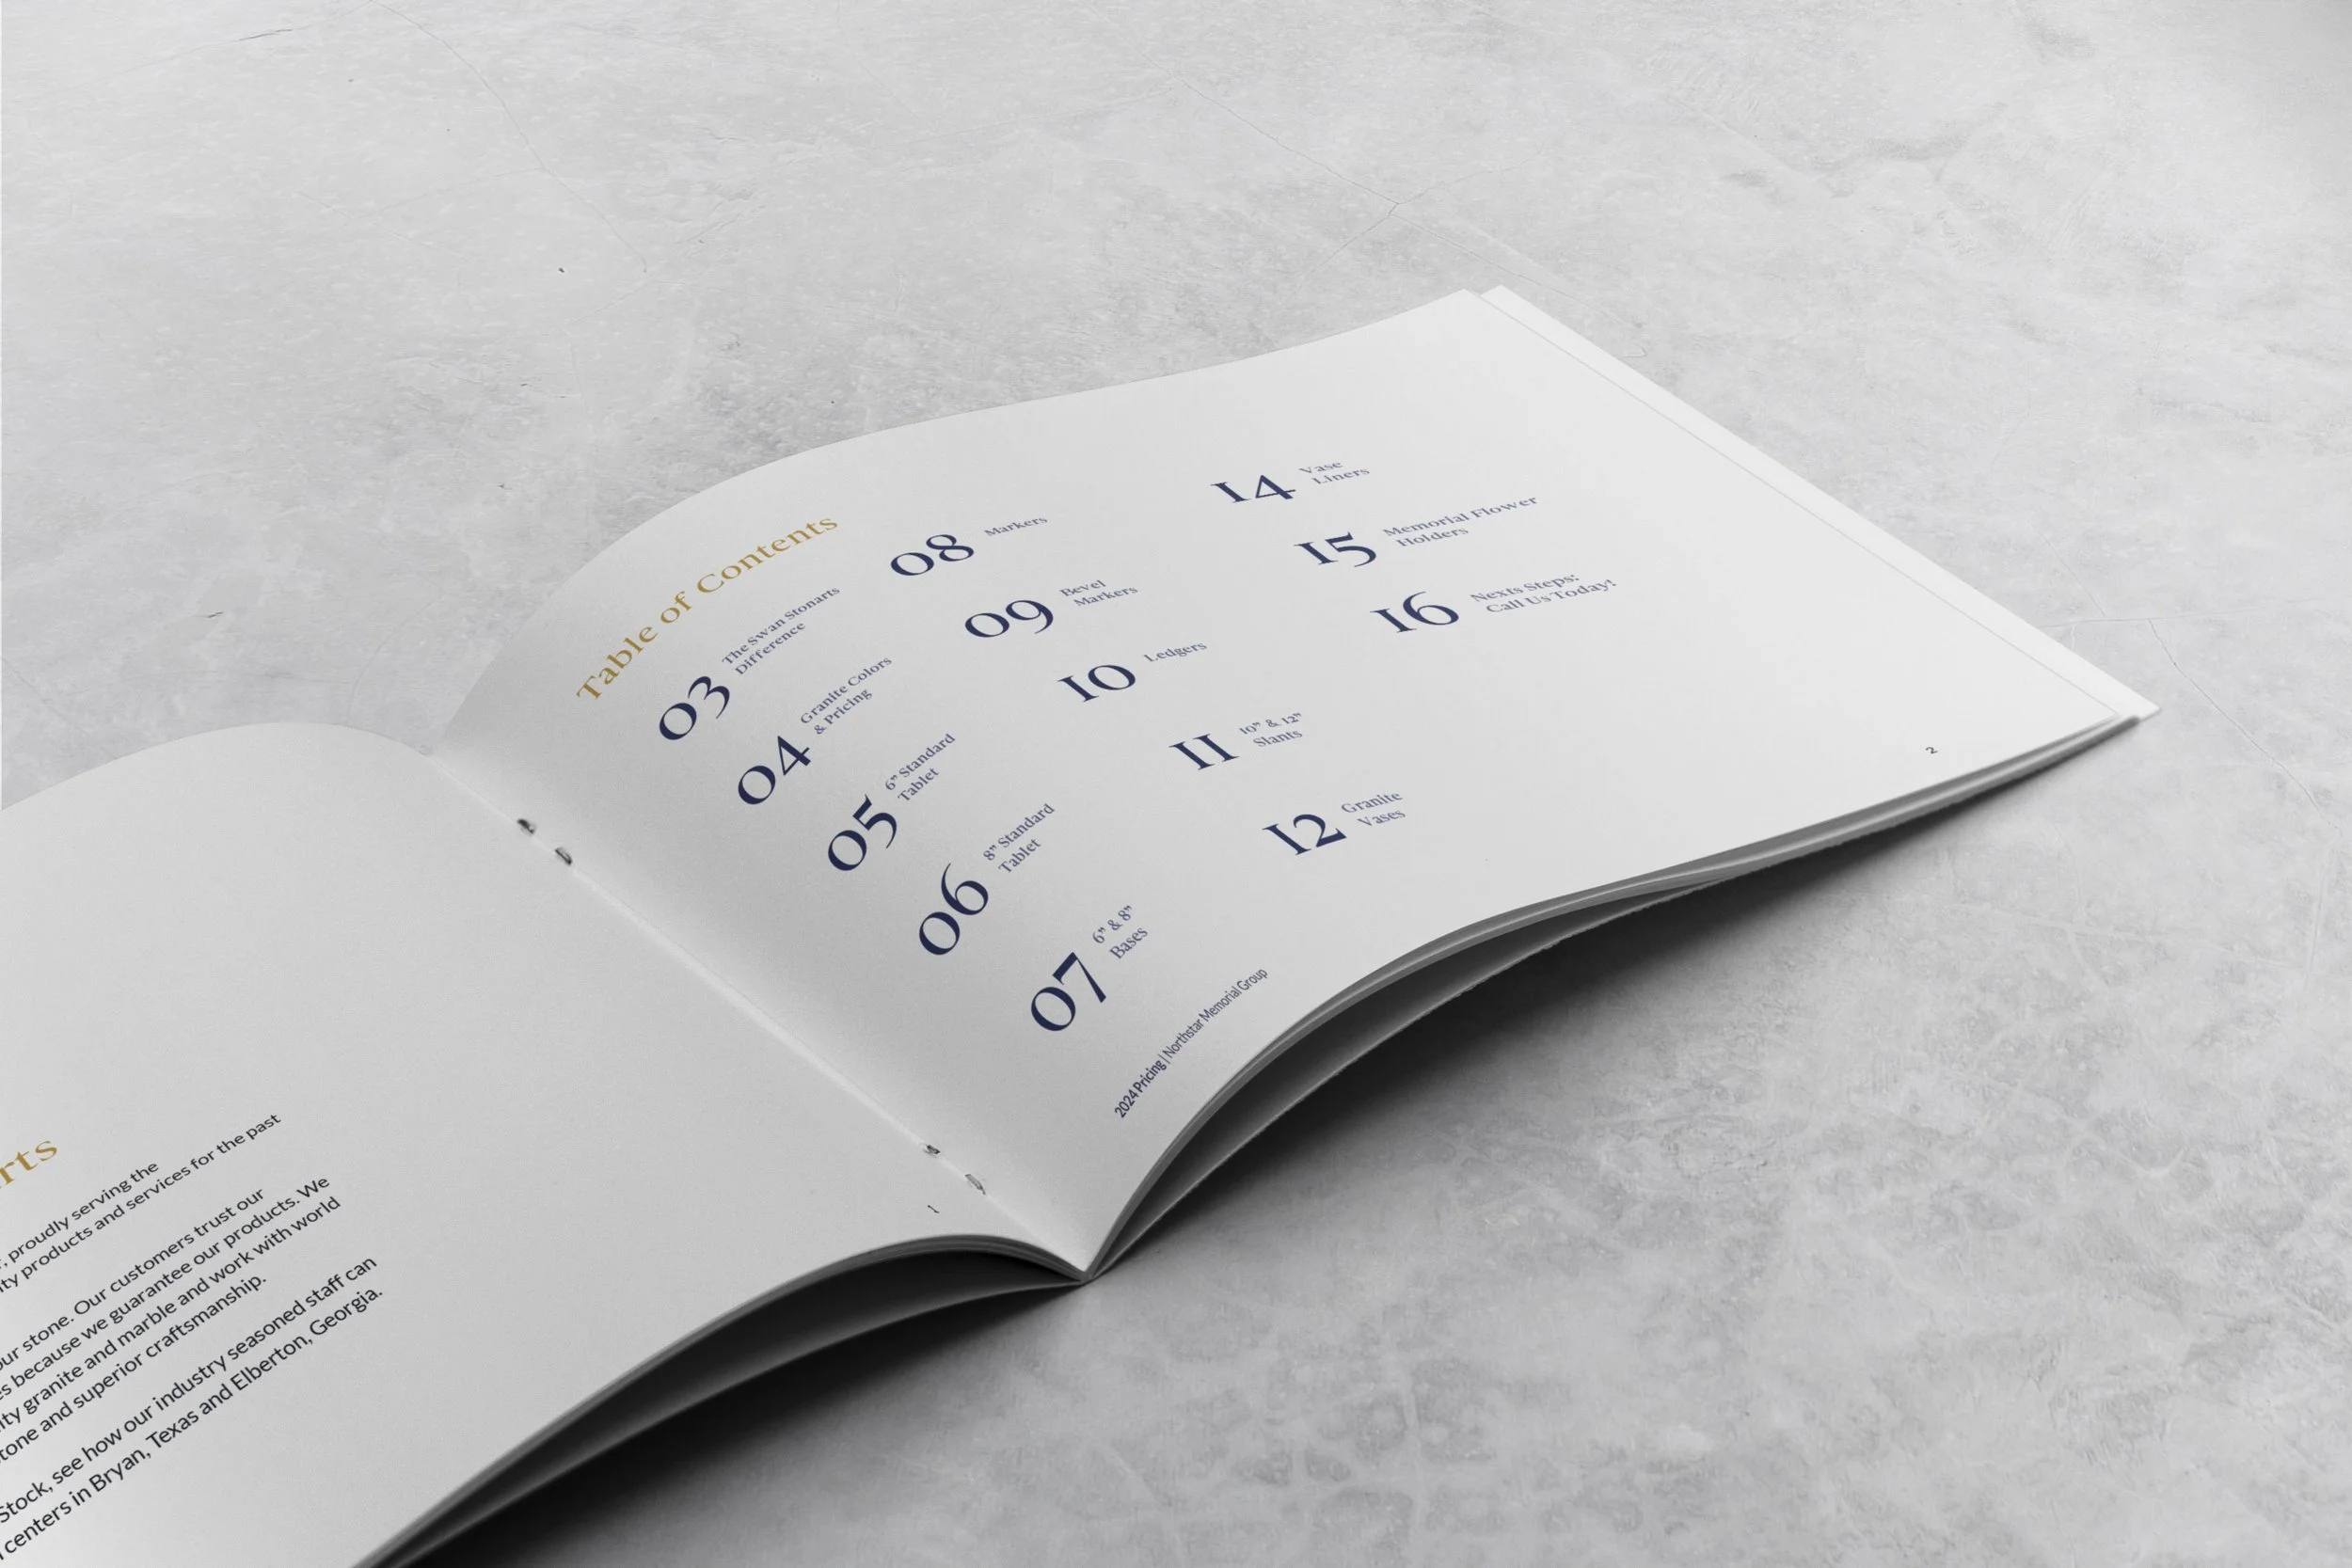 rts
, proudly serving the
ty products and services for the past
our stone. Our customers trust our
es because we guarantee our products. We
ity granite and marble and work with world
tone and superior craftsmanship.
Stock, see how our industry seasoned staff can
centers in Bryan, Texas and Elberton, Georgia.
1
Table of Contents
03 The Swan Stonarts
Difference
04 Granite Colors
& Pricing
05 6" Standard
Tablet
06 8" Standard
Tablet
07 6" & 8"
Bases
08 Markers
09 Bevel
Markers
10 Ledgers
11 10" & 12"
Slants
12 Granite
Vases
14 Vase
Liners
15 Memorial Flower
Holders
16 Nexts Steps:
Call Us Today!
2024 Pricing | Northstar Memorial Group
2